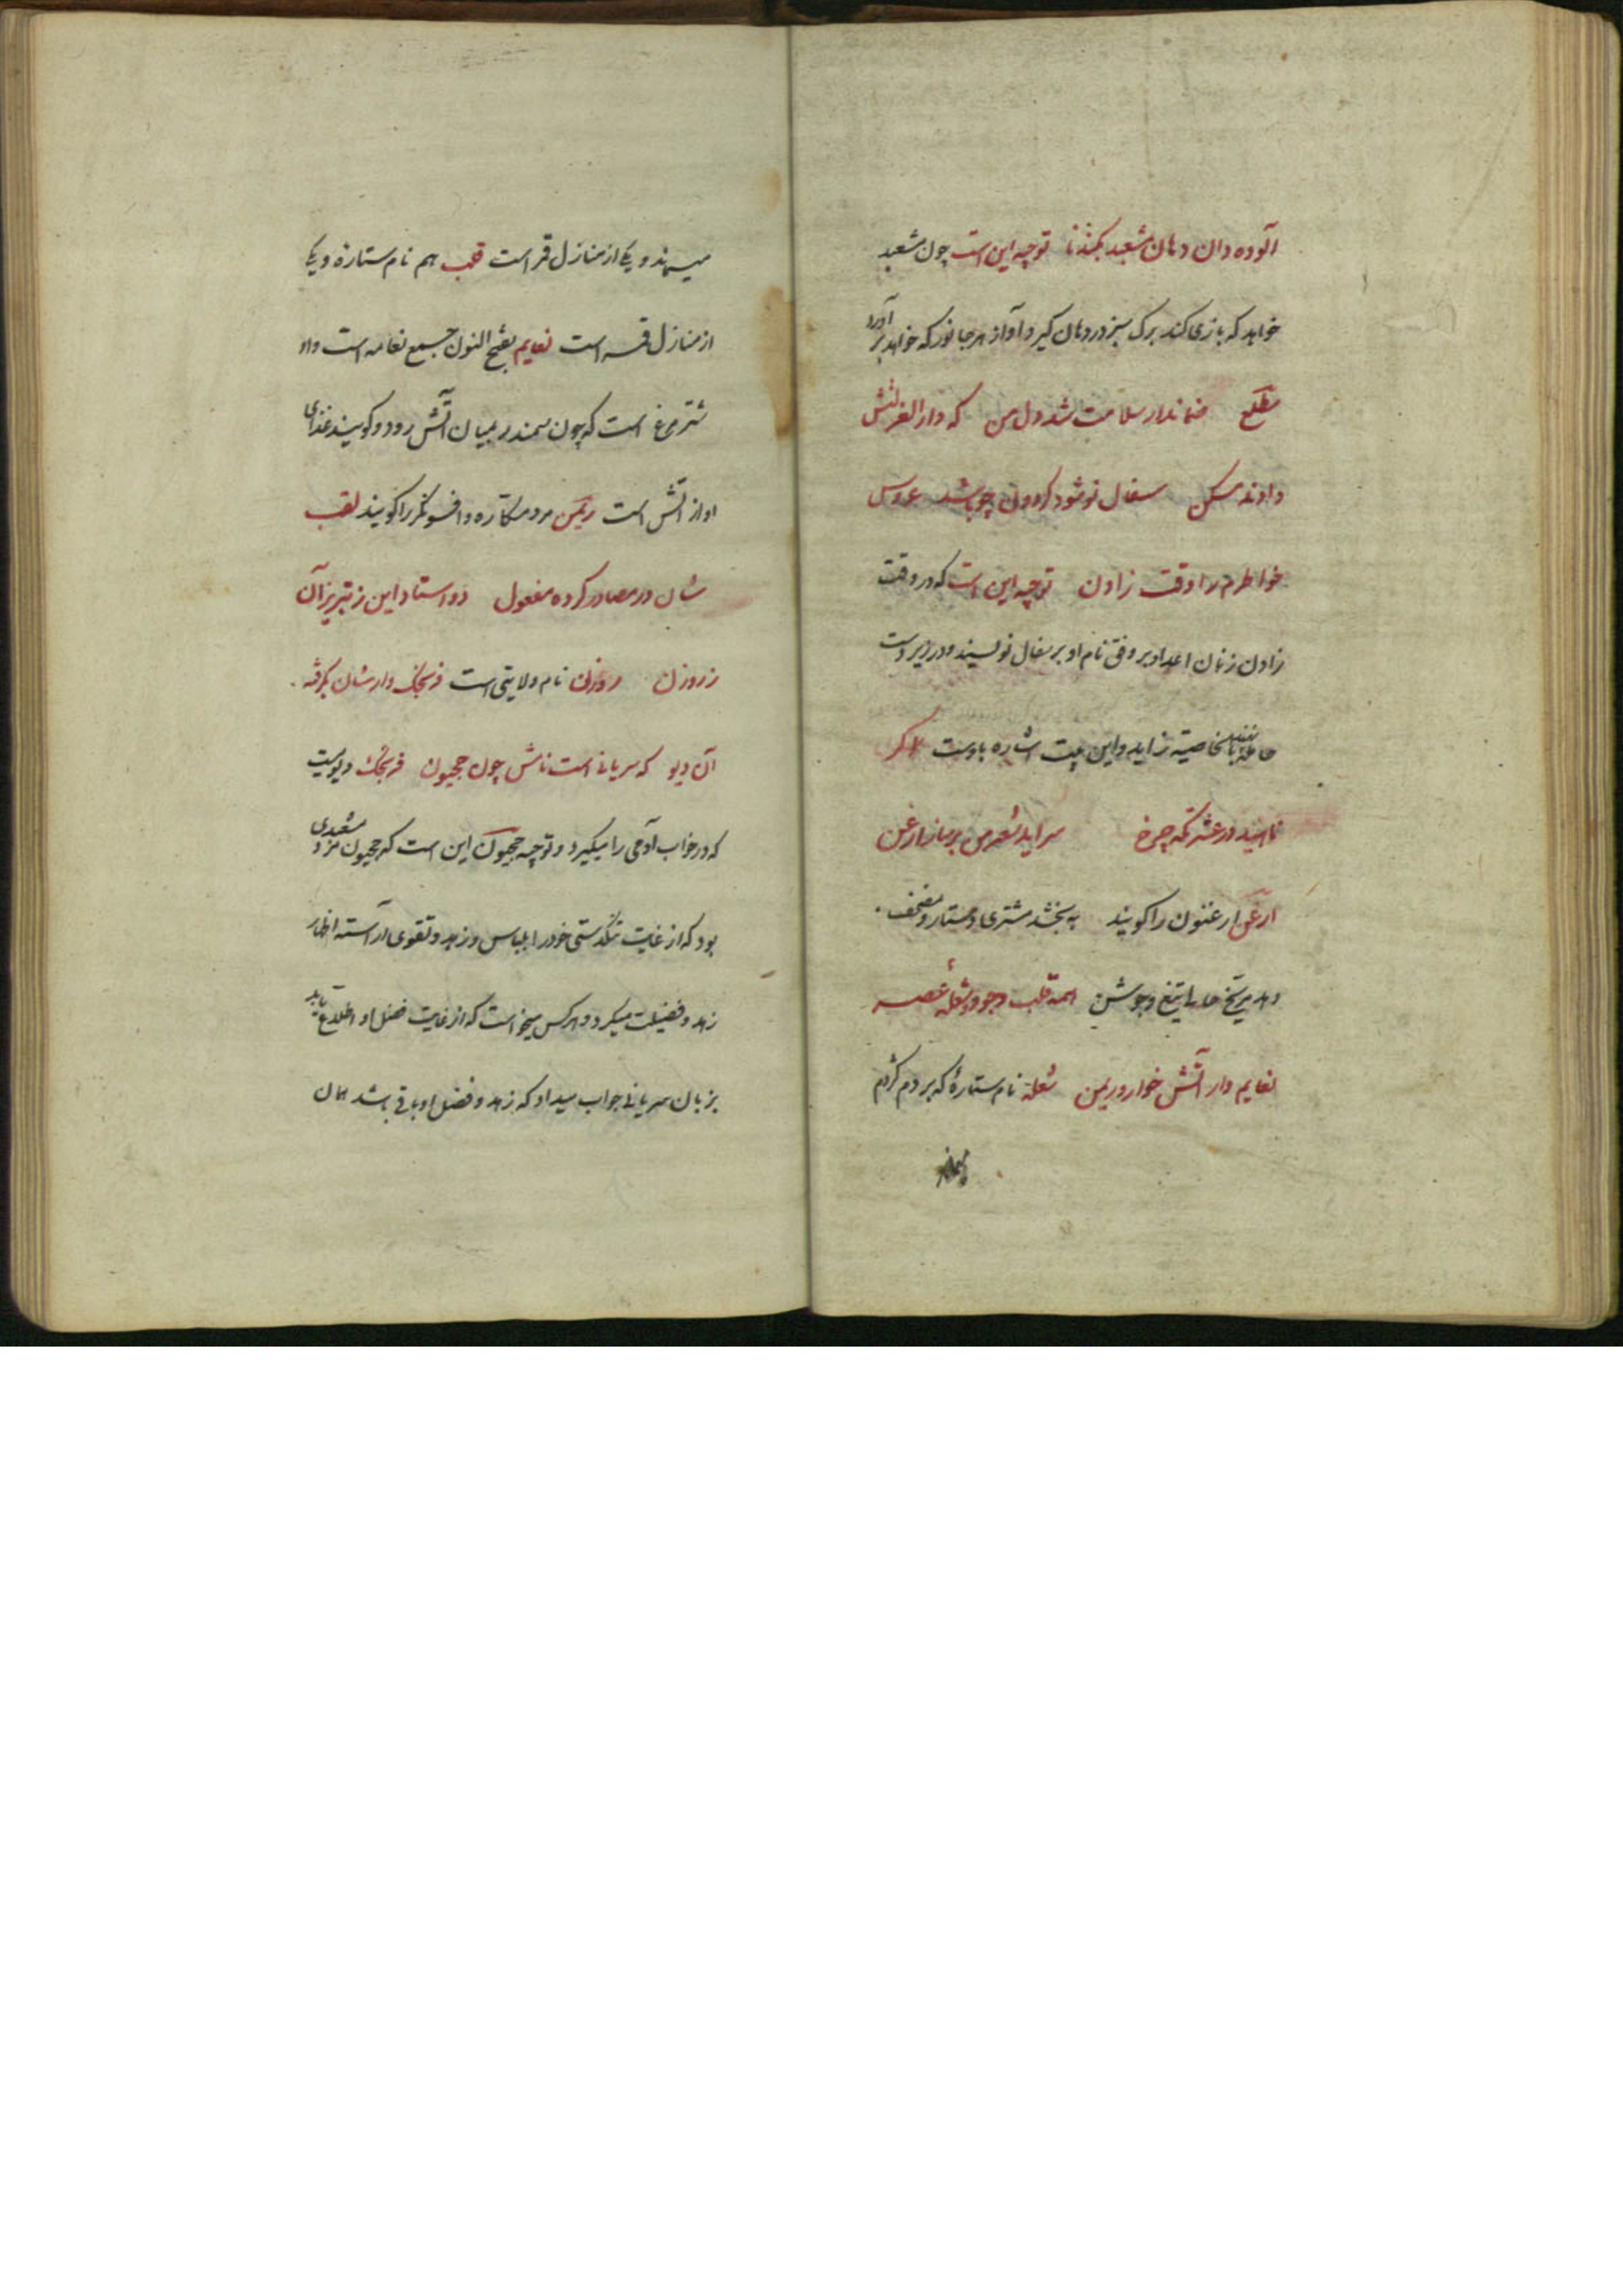 آلوده دان دهان مشعبد بکندنا توجیه این است چون مشعبد
خواهد که بازی کند برک سبز در دهان کیرد و آواز هر جانور که خواهد بر آورد
مطلع ضماندار سلامت شد دل من که دار الغرلتش
دادند مسکن سفال نو شود کردون چو باشد عروس
خواطرم را وقت زادن توجیه این است که در وقت
زادن زنان اعداد بر وفق نام او بر سفال نویسند و در زیر دست
حامله بالخاصیته زاید و این بیت اشاره باوست اکر
ناهید در عشرتکه چرخ سراید شعر من بر ساز ارغن
ارغن ارغنون را کویند به بخشد مشتری دستار و مصحف
دهد مریخ حالی تیغ و جوشن همه قلب وجود و شعله غصه
نعایم وار آتش خوار و ریمن شعله نام ستارۀ که بر دم کژدم
میماند و یکی از منازل قمر است قلب هم نام ستاره و یکی
از منازل قمر است نعایم بفتح النون جمع نعامه است واو
شتر مرغ است که چون سمندر بمیان آتش رود و کویند غذای
او از آتش است ریمن مرد مکاره و افسونکر را کویند لقب
شان در مصادر کرده مفعول دو استاد این ز تبریز آن
ز روزن روزن نام ولایتی است فرنجک وارشان بکرفته
آن دیو که سریانی است نامش چون جحیون فرنجک دیویست
که در خواب آدمی را میکیرد و توجیه جحیون این است که جحیون مرد مشعبدی
بود که از غایت تنکدستی خود را بلباس و زهد و تقوی آراسته اظهار
زهد و فضیلت میکرد و هر کس میخواست که از غایت فضل او اطلاع یابد
بزبان سریانی جواب میداد که زهد و فضل او باقی باشد همان